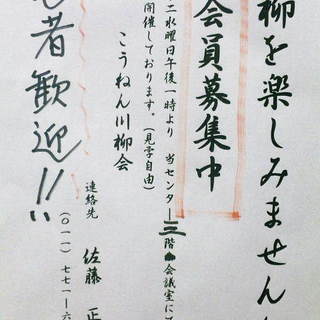 柳を楽しみません
会員募集中
二水曜日午後一時より 当センター三階会議室に
開催しております。(見学自由)
こうねん川柳会
者歓迎!!
連絡先 佐藤 正
(〇一一)七七一-六